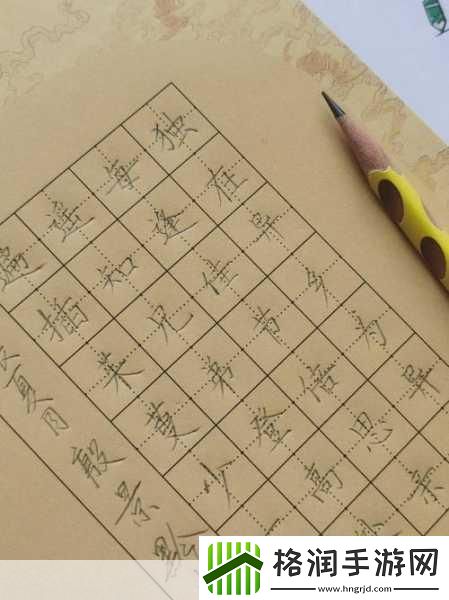 独在异乡为异
每逢佳节倍思亲
遥知兄弟登高处
遍插茱萸少一
夏月殷景
格润手游网
www.hngrjd.com